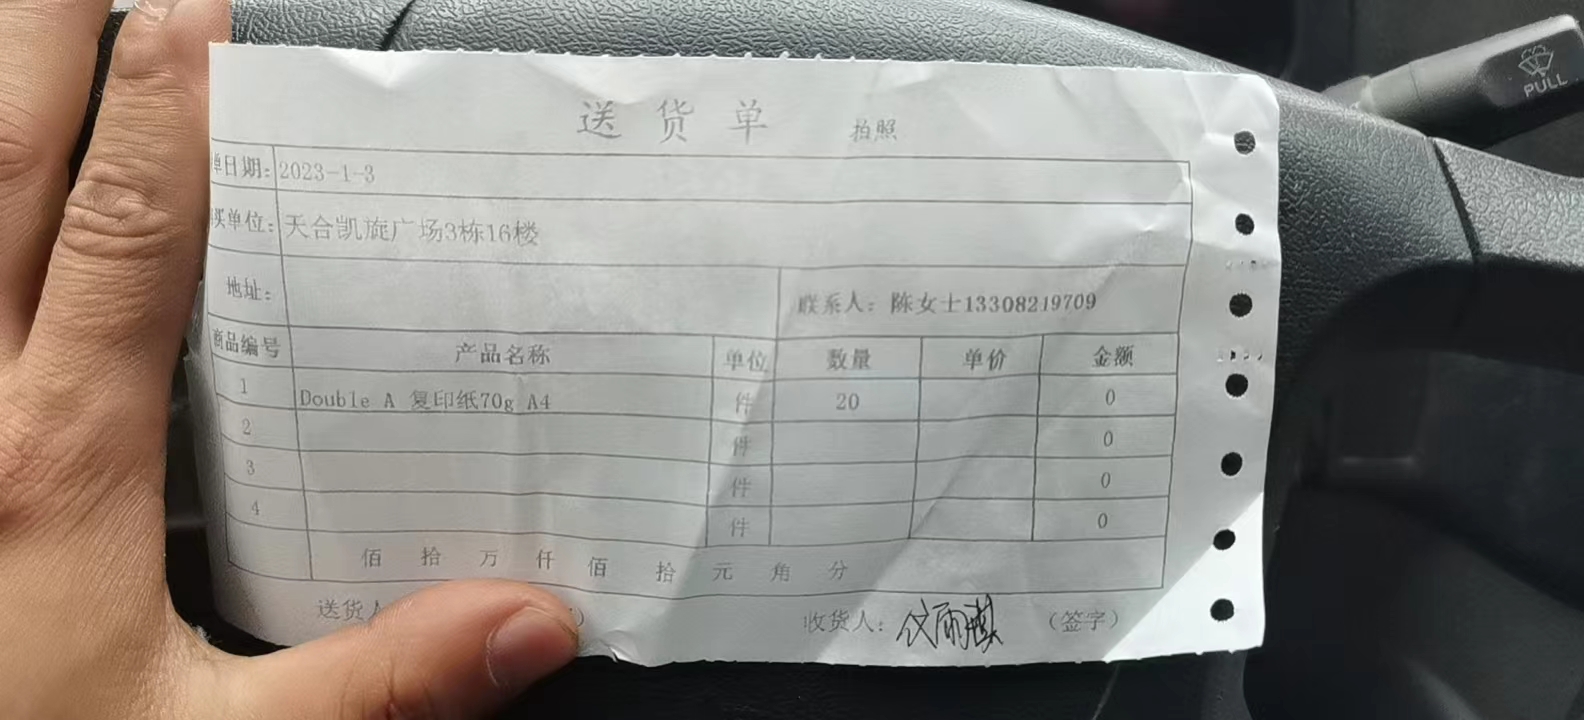 送货单 拍照
单日期: 2023-1-3
买单位: 天合凯旋广场3栋16楼
地址: 联系人: 陈女士13308219709
商品编号 产品名称 单位 数量 单价 金额
1 Double A 复印纸70g A4 件 20 0
2 件 0
3 件 0
4 件 0
佰 拾 万 仟 佰 拾 元 角 分
送货人 ) 收货人: (签字)
PULL